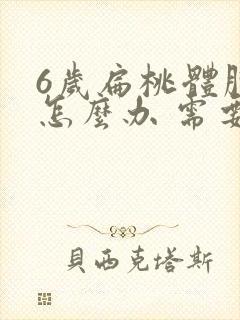 6歲扁桃體
怎麼办 需要
貝西克塔斯